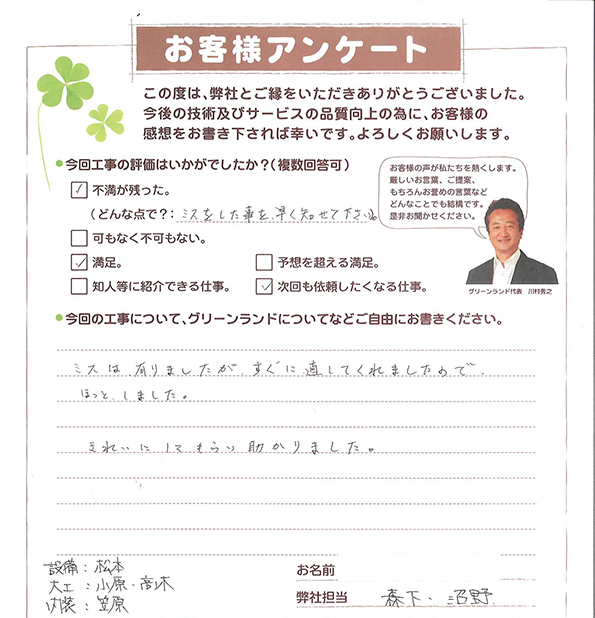 お客様アンケート
この度は、弊社とご縁をいただきありがとうございました。
今後の技術及びサービスの品質向上の為に、お客様の
感想をお書き下されば幸いです。よろしくお願いします。
●今回工事の評価はいかがでしたか?(複数回答可)
お客様の声が私たちを熱くします。
厳しいお言葉、ご提案、
もちろんお誉めの言葉など
どんなことでも結構です。
是非お聞かせください。
✓ 不満が残った。
(どんな点で?: ミスをした事を早く知せて下さい。
可もなく不可もない。
✓ 満足。 予想を超える満足。
知人等に紹介できる仕事。 ✓ 次回も依頼したくなる仕事。
グリーンランド代表 川村秀之
●今回の工事について、グリーンランドについてなどご自由にお書きください。
ミスは有りましたが、すぐに直してくれましたので、
ほっとしました。
きれいにしてもらい助かりました。
設備:松本
大工:小原・高木
内装:笠原
お名前
弊社担当 森下・沼野